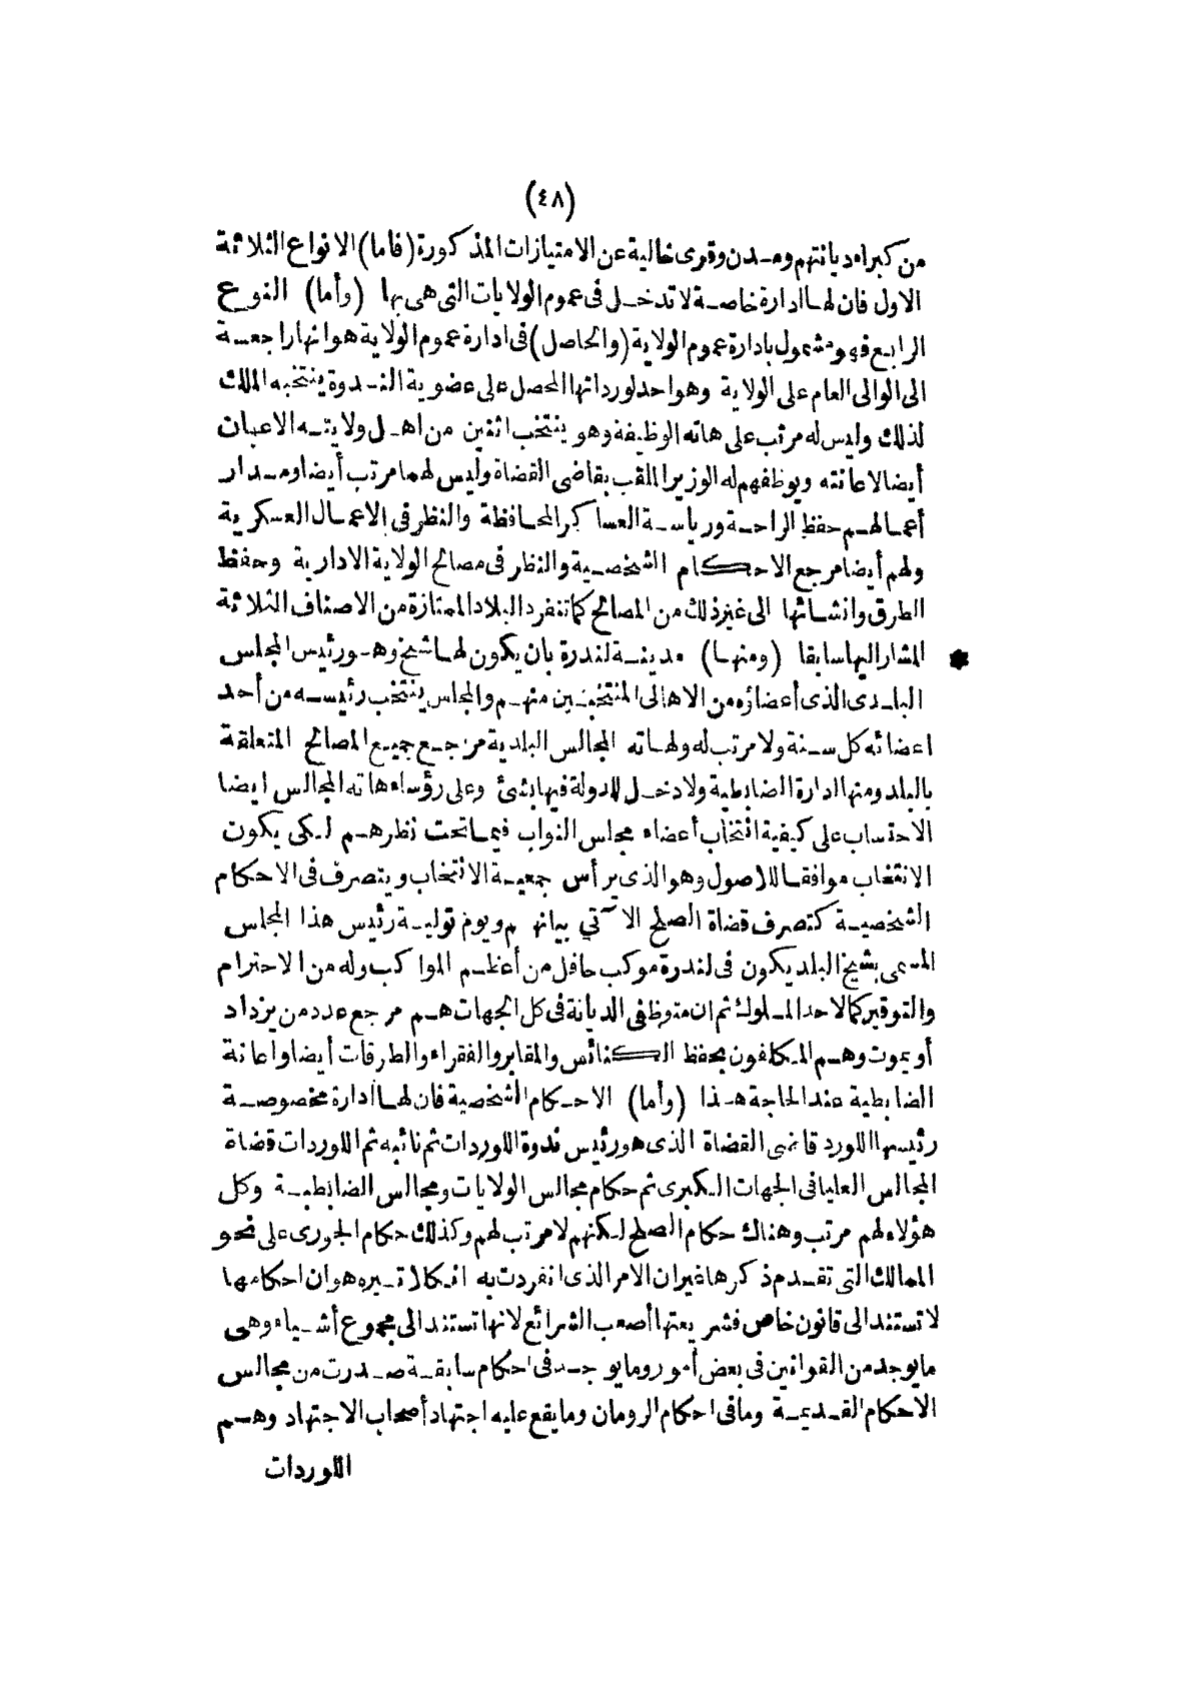 (٤٨)
من كبراء ديانتهم ومدن وقرى خالية عن الامتيازات المذكورة (فاما) الانواع الثلاثة
الاول فان لها ادارة خاصة لا تدخل فى عموم الولايات التى هى بها (وأما) النوع
الرابع فهو مشمول بادارة عموم الولاية (والحاصل) فى ادارة عموم الولاية هو انها راجعة
الى الوالى العام على الولاية وهو احد لورداتها المحصل على عضوية الندوة ينتخبه الملك
لذلك وليس له مرتب على هاته الوظيفة وهو ينتخب اثنين من اهل ولايته الاعيان
أيضا لاعانته ويوظفهم له الوزير الملقب بقاضى القضاة وليس لهما مرتب أيضا ومدار
أعمالهم حفظ الراحة ورياسة العساكر المحافظة والنظر فى الاعمال العسكرية
ولهم أيضا مرجع الاحكام الشخصية والنظر فى مصالح الولاية الادارية وحفظ
الطرق وانشائها الى غير ذلك من المصالح كما تنفرد البلاد الممتازة من الاصناف الثلاثة
المشار اليها سابقا (ومنها) مدينة لندرة بان يكون لها شيخ وهو رئيس المجلس *
البلدى الذى أعضاؤه من الاهالى المنتخبين منهم والمجلس ينتخب رئيسه من أحد
اعضائه كل سنة ولا مرتب له ولهاته المجالس البلدية مرجع جميع المصالح المتعلقة
بالبلد ومنها ادارة الضابطية ولا دخل للدولة فيها بشئ وعلى رؤساء هاته المجالس ايضا
الاحتساب على كيفية انتخاب أعضاء مجلس النواب فيما تحت نظرهم لكى يكون
الانتخاب موافقا للاصول وهو الذى يرأس جمعية الانتخاب ويتصرف فى الاحكام
الشخصية كتصرف قضاة الصلح الآتي بيانهم ويوم تولية رئيس هذا المجلس
المسمى بشيخ البلد يكون فى لندرة موكب حافل من أعظم المواكب وله من الاحترام
والتوقير كما لاحد الملوك ثم ان متوظفى الديانة فى كل الجهات هم مرجع عدد من يزداد
أو يموت وهم المكلفون بحفظ الكنائس والمقابر والفقراء والطرقات أيضا واعانة
الضابطية عند الحاجة هذا (وأما) الاحكام الشخصية فان لها ادارة مخصوصة
رئيسها اللورد قاضى القضاة الذى هو رئيس ندوة اللوردات ثم نائبه ثم اللوردات قضاة
المجالس العليا فى الجهات الكبرى ثم حكام مجالس الولايات ومجالس الضابطية وكل
هؤلاء لهم مرتب وهناك حكام الصلح لكنهم لا مرتب لهم وكذلك حكام الجورى على نحو
الممالك التى تقدم ذكرها غير ان الامر الذى انفردت به انكلاتيره هو ان احكامها
لا تستند الى قانون خاص فشريعتها أصعب الشرائع لانها تستند الى مجموع أشياء وهى
ما يوجد من القوانين فى بعض أمور وما يوجد فى احكام سابقة صدرت من مجالس
الاحكام القديمة وما فى احكام الرومان وما يقع عليه اجتهاد أصحاب الاجتهاد وهم
اللوردات